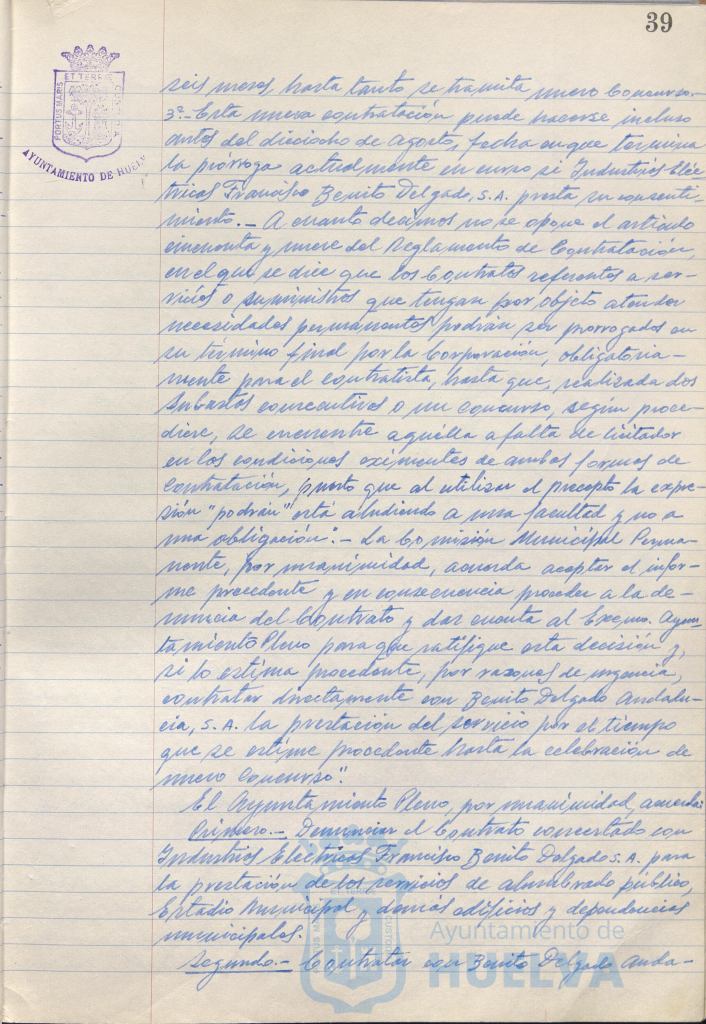 39
ET TERRE
PORTUS MARIS
CUSTODIA
AYUNTAMIENTO DE HUELV
seis meses, hasta tanto se tramita nuevo Concurso.-
3º.- Esta nueva contratación puede hacerse incluso
antes del dieciocho de Agosto, fecha en que termina
la prórroga actualmente en curso si Industrias Eléc-
tricas Francisco Benito Delgado, S.A. presta su consenti-
miento.- A cuanto decimos no se opone el artículo
cincuenta y nueve del Reglamento de Contratación,
en el que se dice que los Contratos referentes a ser-
vicios o suministros que tengan por objeto atender
necesidades permanentes podrán ser prorrogados en
su término final por la Corporación, obligatoria-
mente para el contratista, hasta que, realizada dos
Subastas consecutivas o un concurso, según proce-
diere, se encuentre aquélla a falta de licitador
en los condiciones eximentes de ambas formas de
Contratación, puesto que al utilizar el precepto la expre-
sión "podrán" está aludiendo a una facultad y no a
una obligación".- La Comisión Municipal Perma-
nente, por unanimidad, acuerda aceptar el infor-
me precedente y en consecuencia proceder a la de-
nuncia del Contrato y dar cuenta al Excmo. Ayun-
tamiento Pleno para que ratifique esta decisión y,
si lo estima procedente, por razones de urgencia,
contratar directamente con Benito Delgado Andalu-
cia, S.A. la prestación del servicio por el tiempo
que se estime procedente hasta la celebración de
nuevo Concurso".
El Ayuntamiento Pleno, por unanimidad, acuerda:
Primero.- Denunciar el Contrato concertado con
Industrias Eléctricas Francisco Benito Delgado S.A. para
la prestación de los servicios de alumbrado público,
Estadio Municipal y demás edificios y dependencias
municipales.
Segundo.- Contratar con Benito Delgado Anda-
Ayuntamiento de
HUELVA